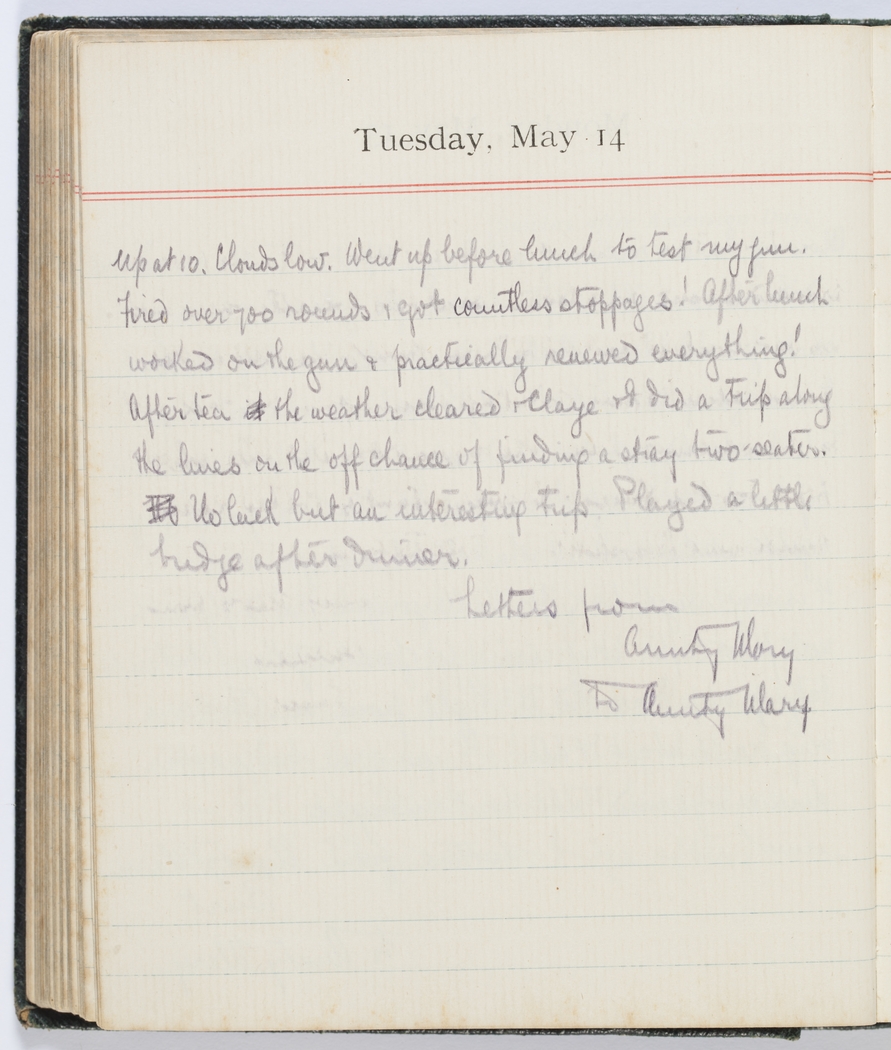 Tuesday, May 14
Up at 10. Clouds low. Went up before lunch to test my gun.
Fired over 700 rounds & got countless stoppages! After lunch
worked on the gun & practically renewed everything!
After tea the weather cleared & Claye & I did a trip along
the lines on the off chance of finding a stray two-seater.
No luck but an interesting trip Played a little
bridge after dinner.
Letters from
Aunty Mary
To Aunty Mary